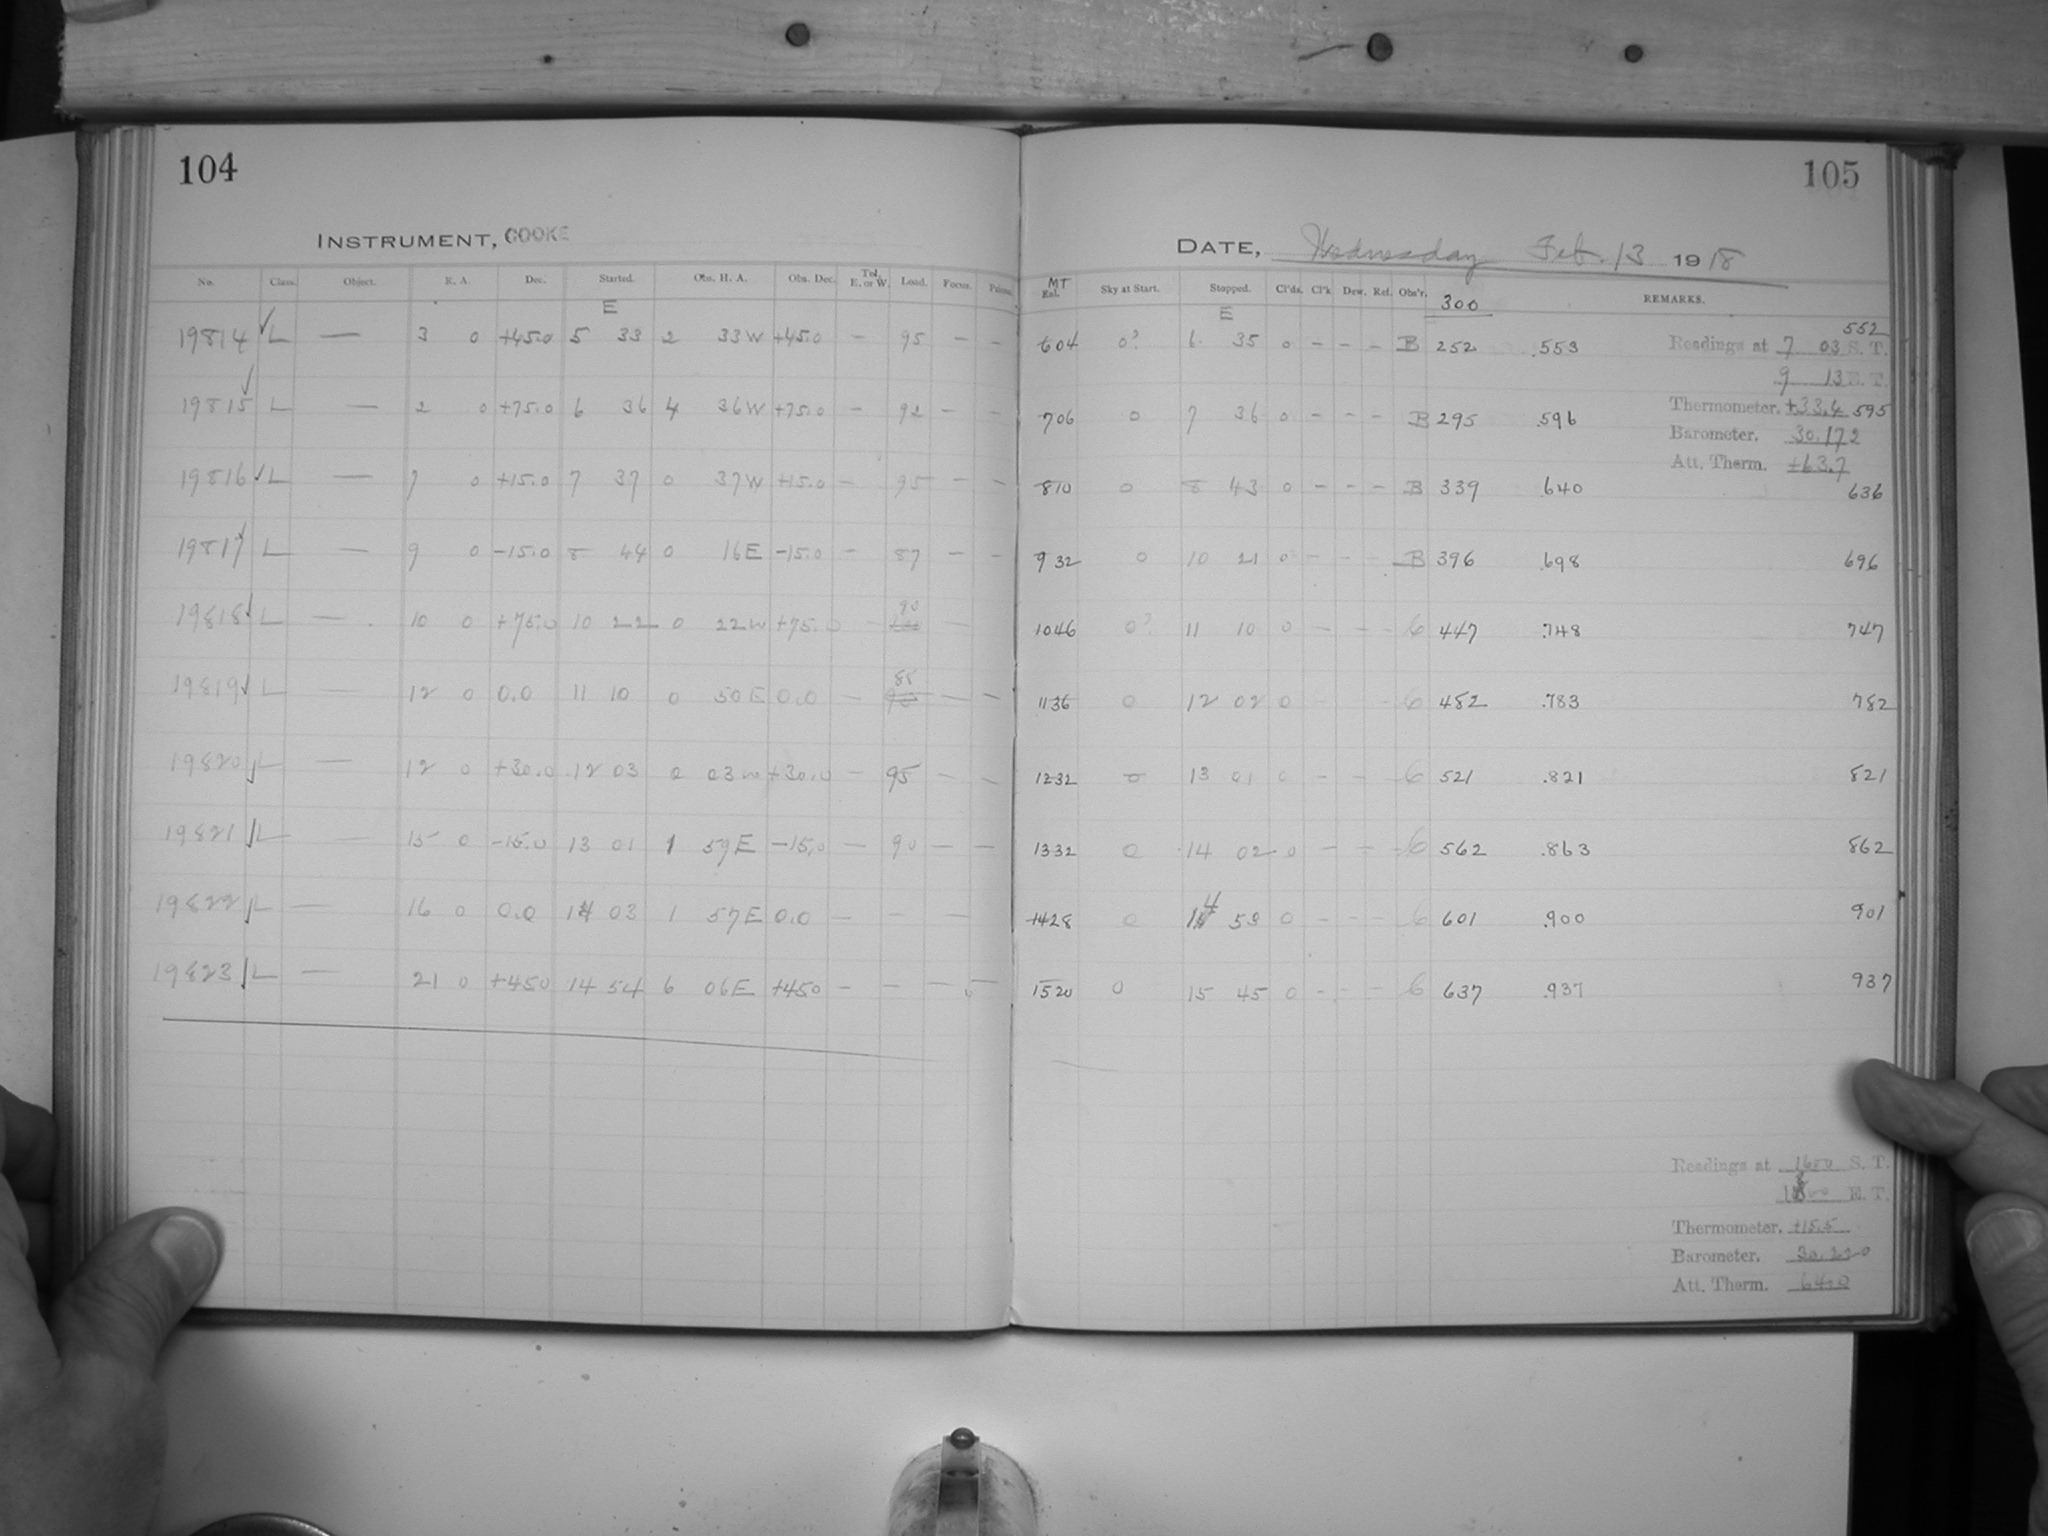 104
INSTRUMENT, COOKE
No. Class. Object. R. A. Dec. Started. Obs. H. A. Obs. Dec. Tel. E. or W. Load. Focus.
E
19814 ✓ L — 3 0 +45.0 5 33 2 33W +45.0 — 95 — —
19815 ✓ L — 2 0 +75.0 6 36 4 36W +75.0 — 92 — —
19816 ✓ L — 7 0 +15.0 7 37 0 37W +15.0 — 95 — —
19817 ✓ L — 9 0 -15.0 8 44 0 16E -15.0 — 87 — —
90
19818 ✓ L — 10 0 +75.0 10 22 0 22W +75.0 — —
85
19819 ✓ L — 12 0 0.0 11 10 0 50E 0.0 — 90 — —
19820 ✓ L — 12 0 +30.0 12 03 0 03W +30.0 — 95 — —
19821 ✓ L — 15 0 -15.0 13 01 1 59E -15.0 — 90 — —
19822 ✓ L — 16 0 0.0 14 03 1 57E 0.0 — — —
19823 ✓ L — 21 0 +450 14 54 6 06E +450 — — — —
105
DATE, Wednesday Feb. 13 1918
MT
Sky at Start. Stopped. Cl'ds. Cl'k Dew. Ref. Obs'r. 300 REMARKS.
E
604 0? 6 35 0 - - - B 252 .553
706 0 7 36 0 - - - B 295 .596
810 0 8 43 0 - - - B 339 .640
932 0 10 21 0 - - - B 396 .698
1046 0? 11 10 0 - - - 6 447 .748
1136 0 12 02 0 - - 6 482 .783
1232 0 13 01 0 - - - 6 521 .821
1332 0 14 02 0 - - - 6 562 .863
1428 0 14 53 0 - - - 6 601 .900
1520 0 15 45 0 - - - 6 637 .937
552
Readings at 7 03 S. T.
9 13 E. T.
Thermometer. +33.4 595
Barometer. 30.172
Att. Therm. +63.7
636
696
747
782
821
862
901
937
Readings at 1600 S. T.
E. T.
Thermometer. +15.5
Barometer. 30.220
Att. Therm. 64.0